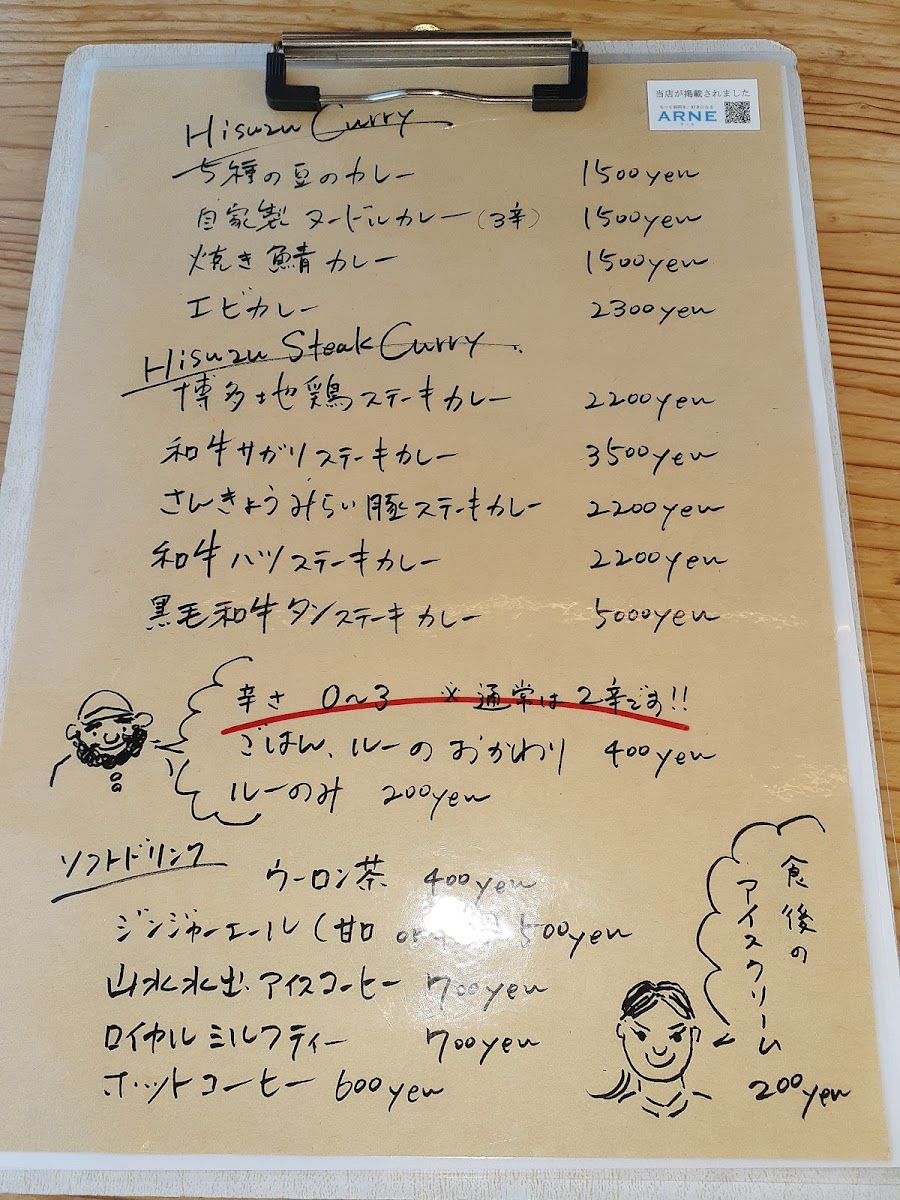 当店が掲載されました
ARNE
Hisuzu Curry
5種の豆のカレー 1500yen
自家製 ヌードルカレー (3辛) 1500yen
焼き鯖カレー 1500yen
エビカレー 2300yen
Hisuzu Steak Curry
博多地鶏ステーキカレー 2200yen
和牛サガリステーキカレー 3500yen
さんきょうみらい豚ステーキカレー 2200yen
和牛ハツステーキカレー 2200yen
黒毛和牛タンステーキカレー 5000yen
辛さ 0~3 ※通常は2辛です!!
ごはん、ルーのおかわり 400yen
ルーのみ 200yen
ソフトドリンク
ウーロン茶 400yen
ジンジャーエール (甘口 or 500yen
山水水出アイスコーヒー 700yen
ロイヤルミルクティー 700yen
ホットコーヒー 600yen
食後の
アイスクリーム
200yen